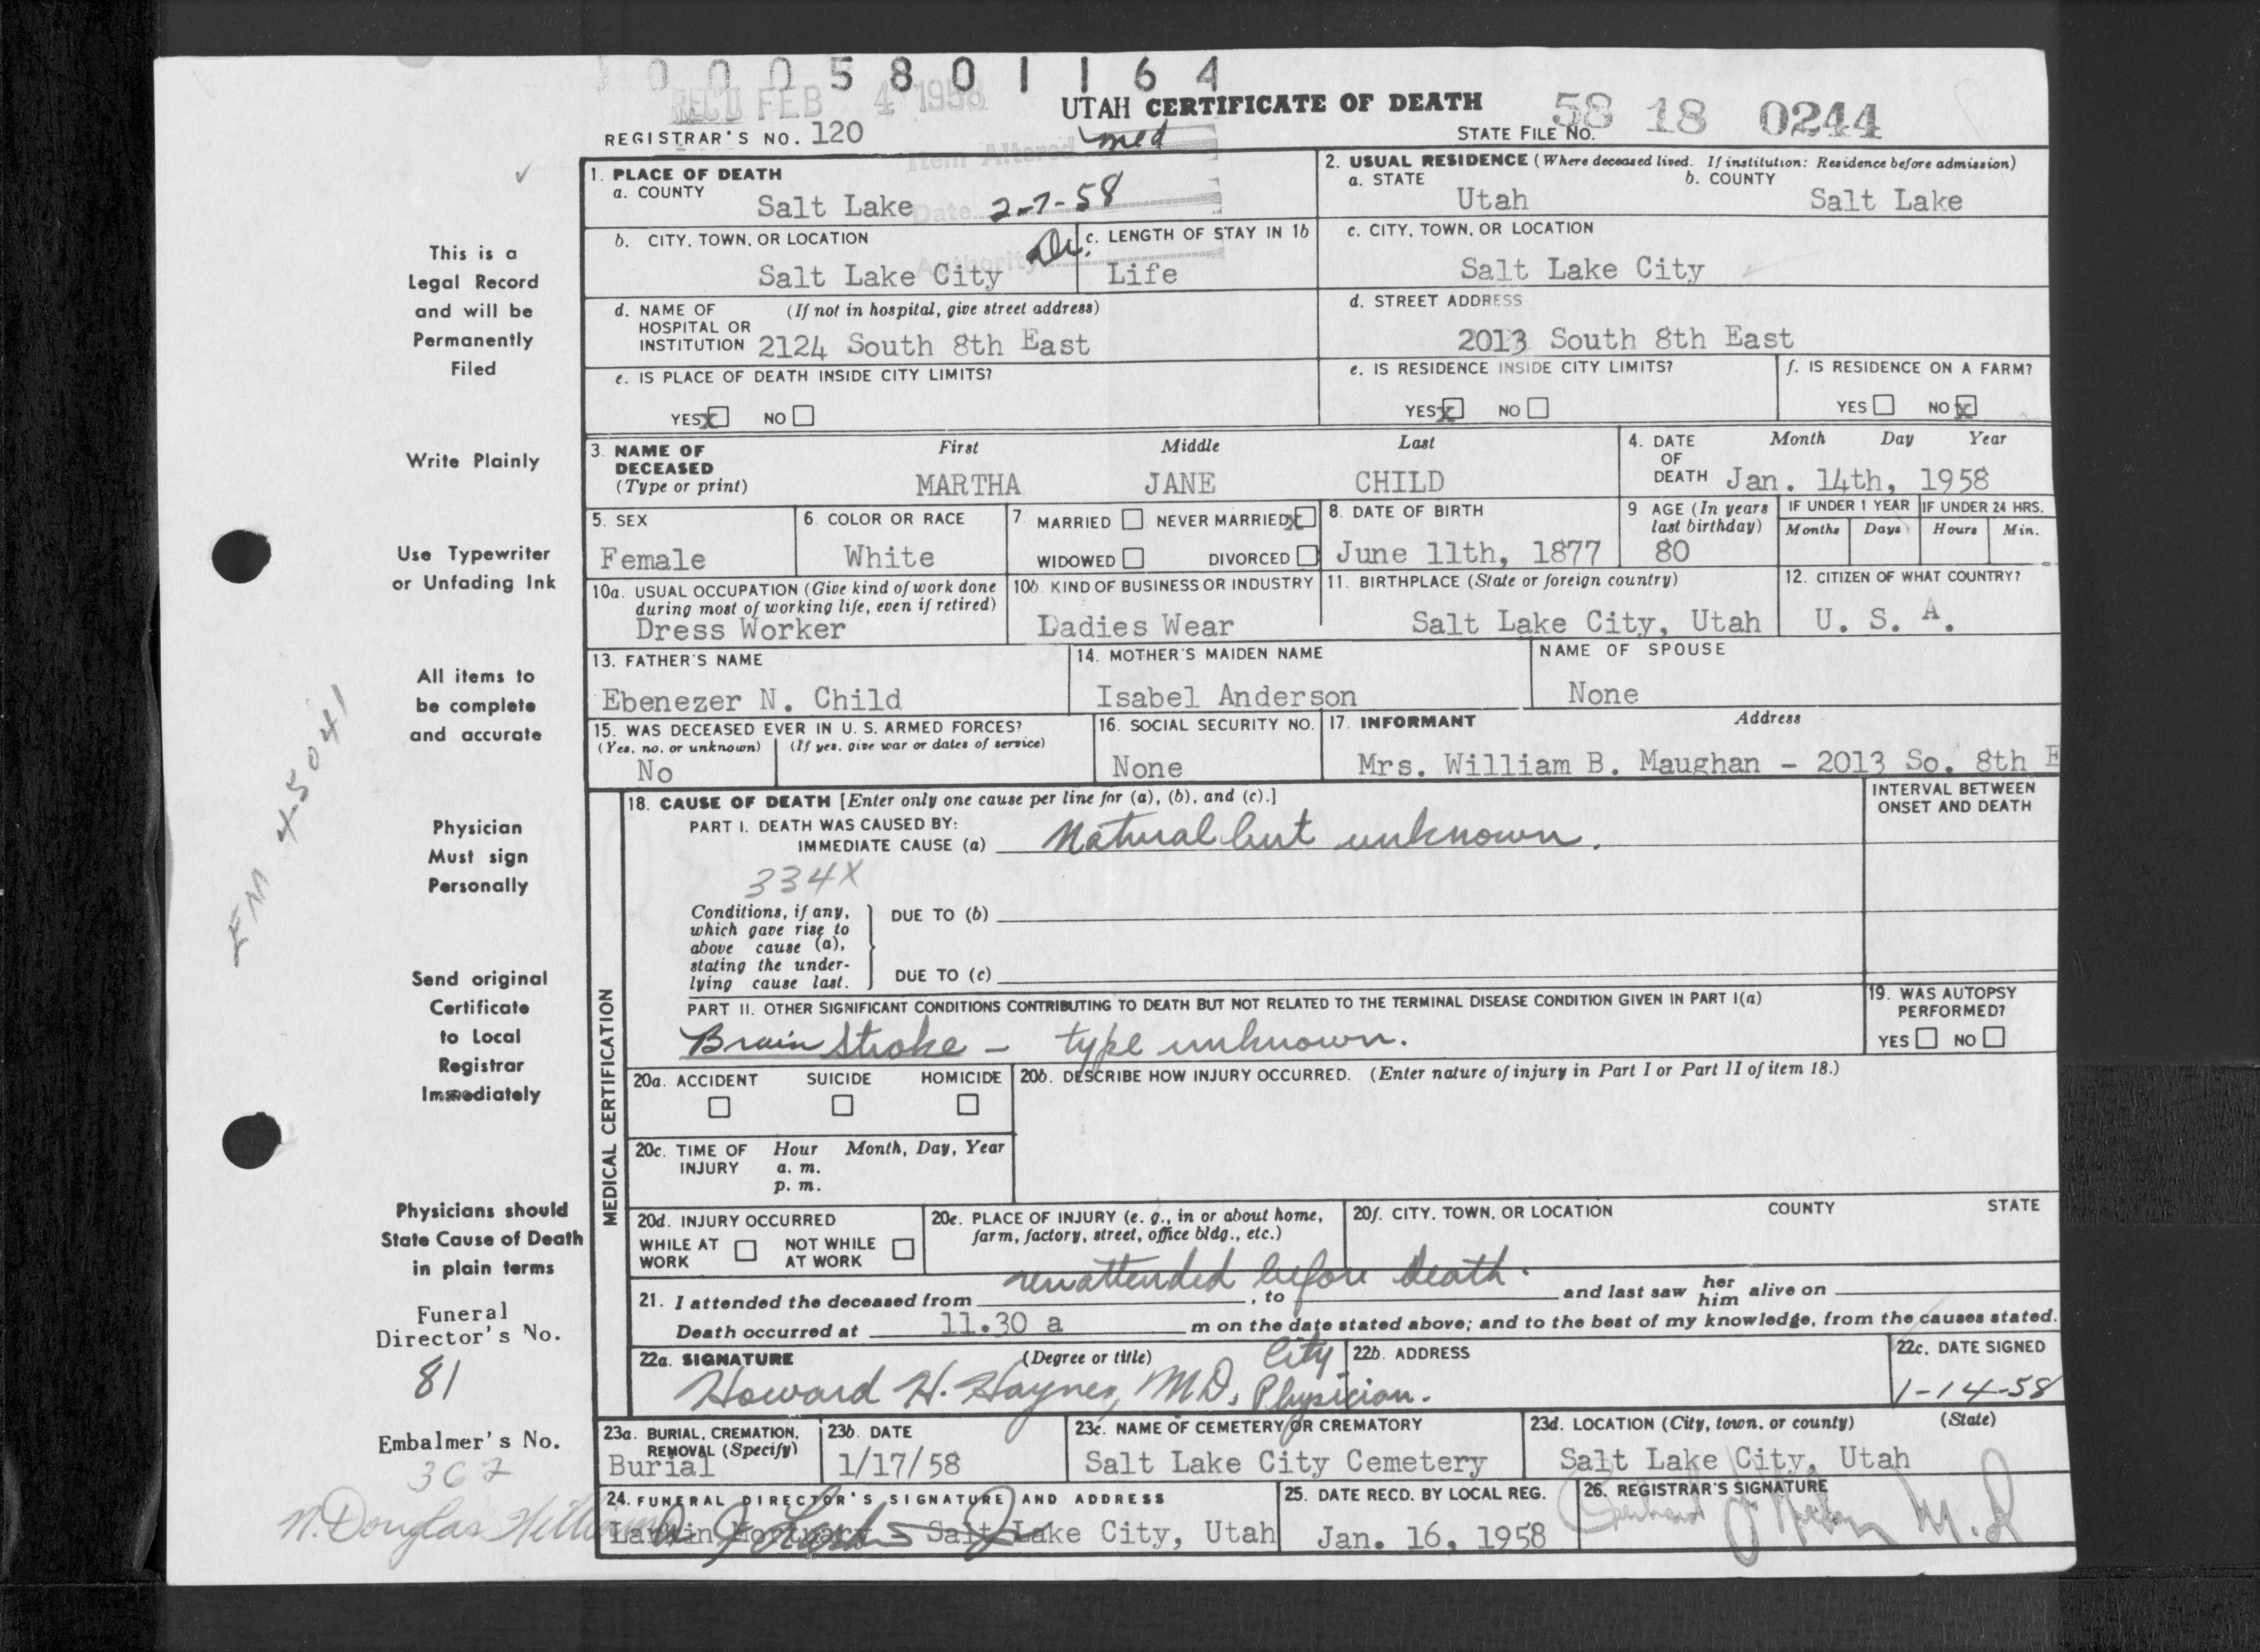 0 0 0 5 8 0 1 1 6 4
REC'D FEB 4 1958
UTAH CERTIFICATE OF DEATH
58 18 0244
REGISTRAR'S NO. 120
STATE FILE NO.
Item Altered med
Date 2-7-58
Authority
1. PLACE OF DEATH
a. COUNTY
Salt Lake
2. USUAL RESIDENCE (Where deceased lived. If institution: Residence before admission)
a. STATE b. COUNTY
Utah Salt Lake
b. CITY, TOWN, OR LOCATION
Salt Lake City
c. LENGTH OF STAY IN 1b
Life
c. CITY, TOWN, OR LOCATION
Salt Lake City
d. NAME OF (If not in hospital, give street address)
HOSPITAL OR
INSTITUTION 2124 South 8th East
d. STREET ADDRESS
2013 South 8th East
e. IS PLACE OF DEATH INSIDE CITY LIMITS?
YES X NO
e. IS RESIDENCE INSIDE CITY LIMITS?
YES X NO
f. IS RESIDENCE ON A FARM?
YES NO X
3. NAME OF
DECEASED
(Type or print)
First Middle Last
MARTHA JANE CHILD
4. DATE
OF
DEATH
Month Day Year
Jan. 14th, 1958
5. SEX
Female
6. COLOR OR RACE
White
7. MARRIED NEVER MARRIED X
WIDOWED DIVORCED
8. DATE OF BIRTH
June 11th, 1877
9 AGE (In years
last birthday)
80
IF UNDER 1 YEAR
Months Days
IF UNDER 24 HRS.
Hours Min.
10a. USUAL OCCUPATION (Give kind of work done
during most of working life, even if retired)
Dress Worker
10b. KIND OF BUSINESS OR INDUSTRY
Dadies Wear
11. BIRTHPLACE (State or foreign country)
Salt Lake City, Utah
12. CITIZEN OF WHAT COUNTRY?
U. S. A.
13. FATHER'S NAME
Ebenezer N. Child
14. MOTHER'S MAIDEN NAME
Isabel Anderson
NAME OF SPOUSE
None
15. WAS DECEASED EVER IN U. S. ARMED FORCES?
(Yes, no, or unknown) (If yes, give war or dates of service)
No
16. SOCIAL SECURITY NO.
None
17. INFORMANT Address
Mrs. William B. Maughan - 2013 So. 8th E
MEDICAL CERTIFICATION
18. CAUSE OF DEATH [Enter only one cause per line for (a), (b), and (c).]
PART I. DEATH WAS CAUSED BY:
IMMEDIATE CAUSE (a) Natural but unknown.
334X
INTERVAL BETWEEN
ONSET AND DEATH
Conditions, if any,
which gave rise to
above cause (a),
stating the under-
lying cause last.
DUE TO (b)
DUE TO (c)
PART II. OTHER SIGNIFICANT CONDITIONS CONTRIBUTING TO DEATH BUT NOT RELATED TO THE TERMINAL DISEASE CONDITION GIVEN IN PART I(a)
Brain Stroke - type unknown.
19. WAS AUTOPSY
PERFORMED?
YES NO
20a. ACCIDENT SUICIDE HOMICIDE
20b. DESCRIBE HOW INJURY OCCURRED. (Enter nature of injury in Part I or Part II of item 18.)
20c. TIME OF Hour Month, Day, Year
INJURY a. m.
p. m.
20d. INJURY OCCURRED
WHILE AT NOT WHILE
WORK AT WORK
20e. PLACE OF INJURY (e. g., in or about home,
farm, factory, street, office bldg., etc.)
20f. CITY, TOWN, OR LOCATION COUNTY STATE
unattended before death.
21. I attended the deceased from , to and last saw her him alive on
Death occurred at 11.30 a m on the date stated above; and to the best of my knowledge, from the causes stated.
22a. SIGNATURE (Degree or title)
Howard H. Haynes, M.D. City Physician.
22b. ADDRESS
22c. DATE SIGNED
1-14-58
23a. BURIAL, CREMATION,
REMOVAL (Specify)
Burial
23b. DATE
1/17/58
23c. NAME OF CEMETERY OR CREMATORY
Salt Lake City Cemetery
23d. LOCATION (City, town, or county) (State)
Salt Lake City, Utah
24. FUNERAL DIRECTOR'S SIGNATURE AND ADDRESS
Larkin Mortuary Salt Lake City, Utah
25. DATE RECD. BY LOCAL REG.
Jan. 16, 1958
26. REGISTRAR'S SIGNATURE
M.D
This is a
Legal Record
and will be
Permanently
Filed
Write Plainly
Use Typewriter
or Unfading Ink
All items to
be complete
and accurate
Physician
Must sign
Personally
Send original
Certificate
to Local
Registrar
Immediately
Physicians should
State Cause of Death
in plain terms
Funeral
Director's No.
81
Embalmer's No.
367
W. Douglas
FM 45041